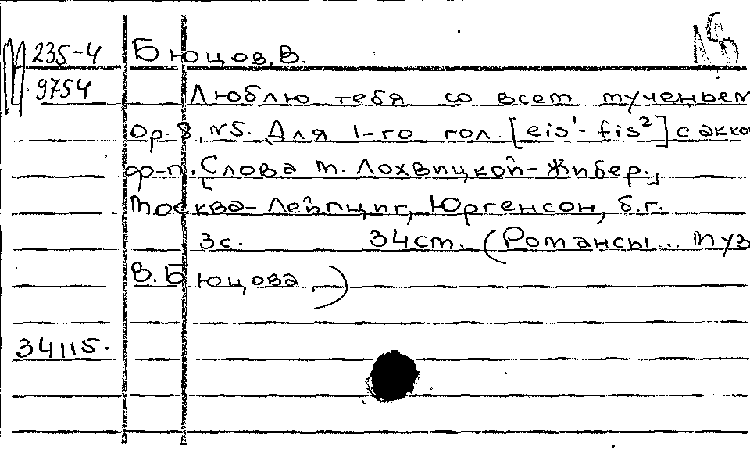 М 235-4 Бюцов, В.
9754 Люблю тебя со всем мученьем
Op. 8, N5. Для 1-го гол. [eis¹-fis²] с акко
ф-п. Слова М. Лохвицкой-Жибер.
Москва-Лейпциг, Юргенсон, б.г.
3с. 34см. (Романсы... муз
В. Бюцова.)
34115.